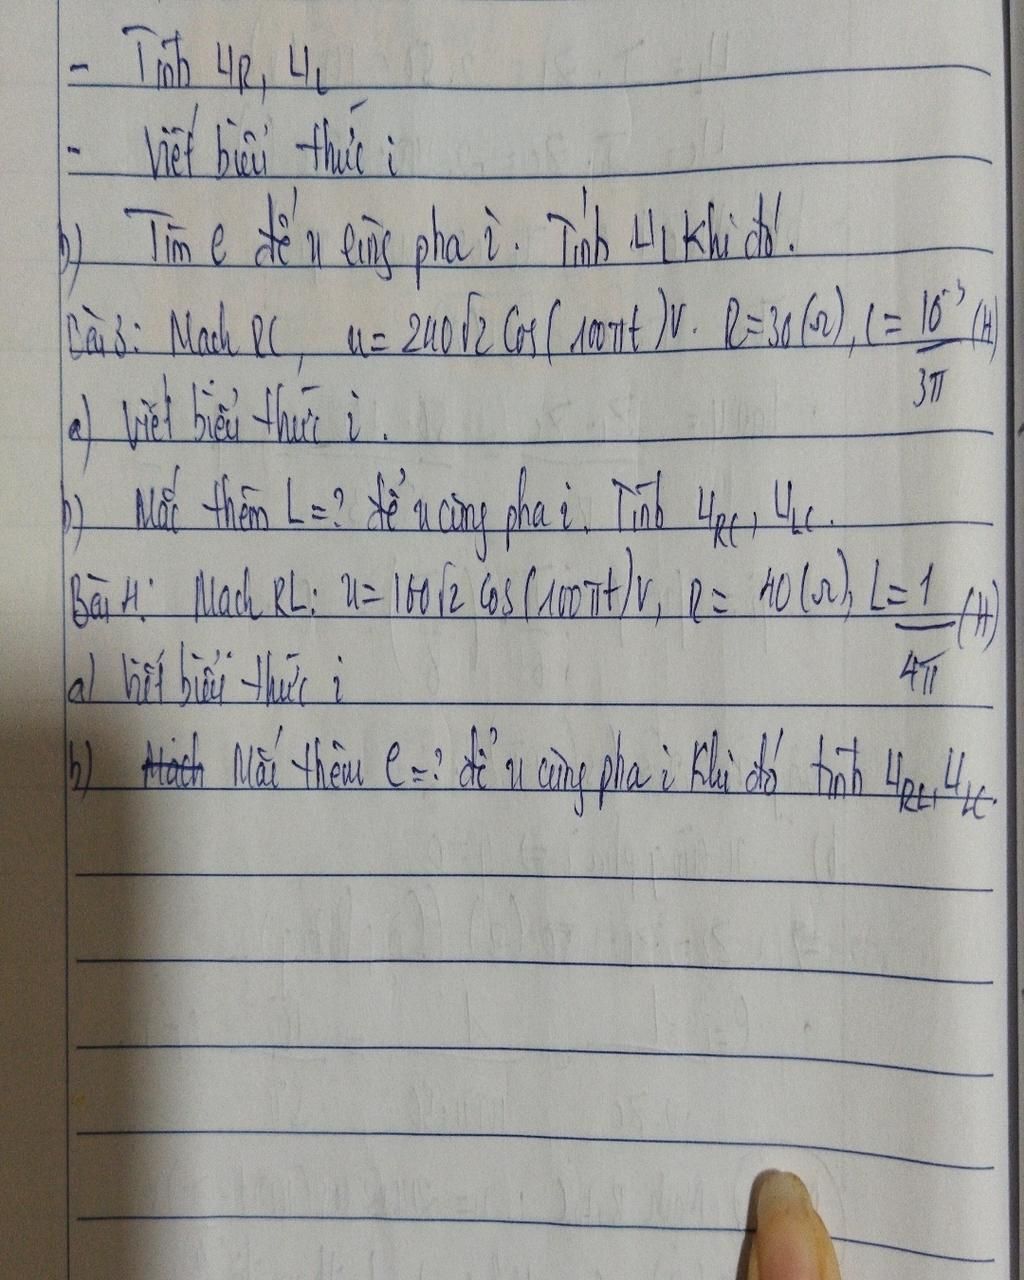 - Tính UR, UL
- Viết biểu thức i
b) Tìm C để u cùng pha i. Tính UL khi đó.
Bài 3: Mạch RC, u = 240√2 cos(100πt)V. R=30(Ω), C = 10⁻³/3π (H)
a) Viết biểu thức i.
b) Mắc thêm L=? để u cùng pha i. Tính URC, ULC.
Bài 4: Mạch RL: u = 160√2 cos(100πt)V, R = 40(Ω), L = 1/4π (H)
a) Viết biểu thức i
b) Mạch Mắc thêm C=? để u cùng pha i khi đó tính URL, ULC.